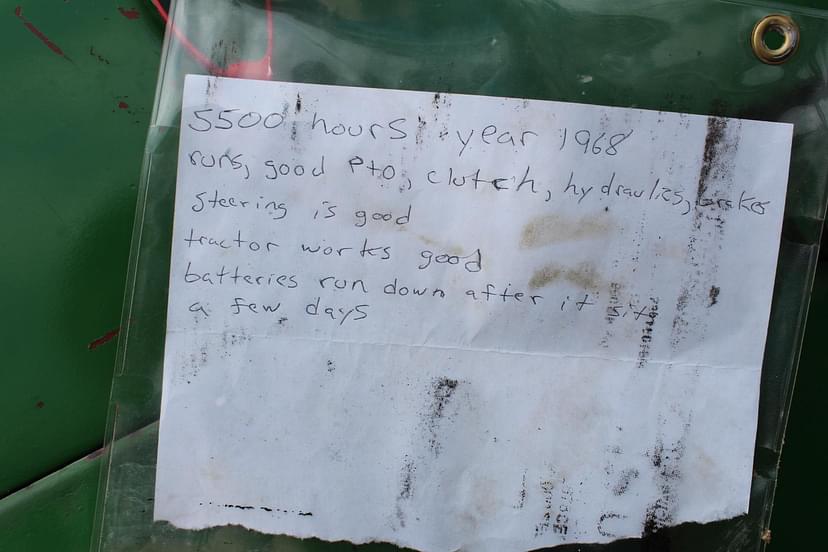 5500 hours year 1968
runs, good pto, clutch, hydraulics, brakes
steering is good
tractor works good
batteries run down after it sits
a few days